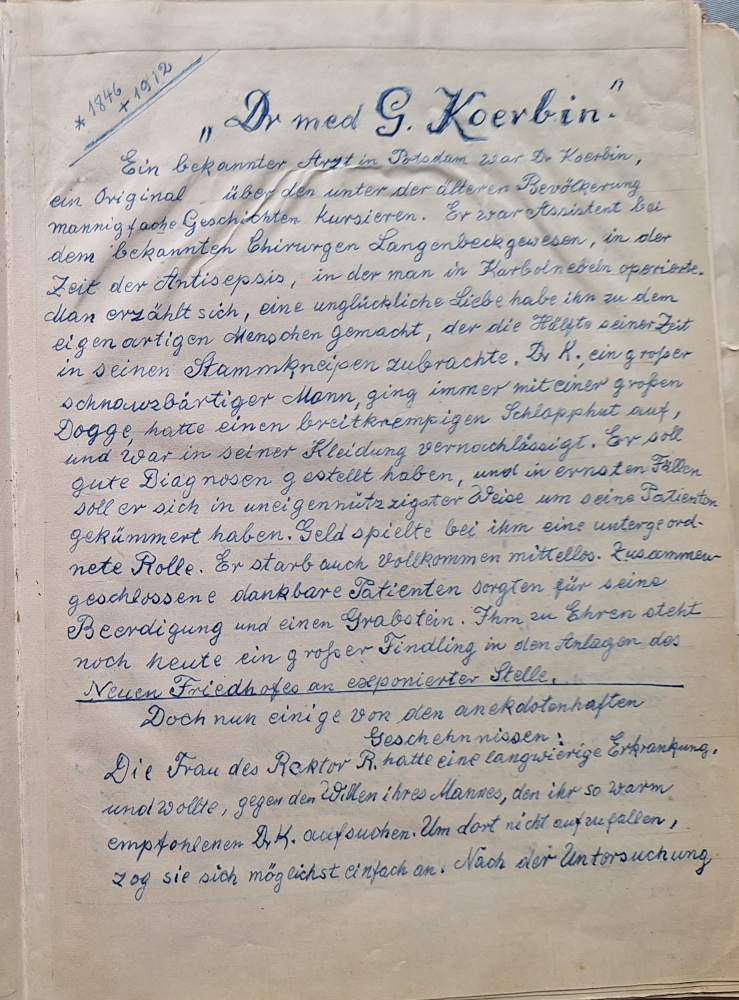 * 1846
+ 1912
„Dr med G. Koerbin."
Ein bekannter Arzt in Potsdam war Dr Koerbin,
ein Original über den unter der älteren Bevölkerung
mannigfache Geschichten kursieren. Er war Assistent bei
dem bekannten Chirurgen Langenbeck gewesen, in der
Zeit der Antisepsis, in der man in Karbolnebeln operierte.
Man erzählt sich, eine unglückliche Liebe habe ihn zu dem
eigenartigen Menschen gemacht, der die Hälfte seiner Zeit
in seinen Stammkneipen zubrachte. Dr K., ein großer
schnauzbärtiger Mann, ging immer mit einer großen
Dogge, hatte einen breitkrempigen Schlapphut auf,
und war in seiner Kleidung vernachlässigt. Er soll
gute Diagnosen gestellt haben, und in ernsten Fällen
soll er sich in uneigennützzigster Weise um seine Patienten
gekümmert haben. Geld spielte bei ihm eine untergeord-
nete Rolle. Er starb auch vollkommen mittellos. Zusammen-
geschlossene dankbare Patienten sorgten für seine
Beerdigung und einen Grabstein. Ihm zu Ehren steht
noch heute ein großer Findling in den Anlagen des
Neuen Friedhofes an exponierter Stelle.
Doch nun einige von den anekdotenhaften
Geschehnissen:
Die Frau des Rektor R. hatte eine langwierige Erkrankung,
und wollte, gegen den Willen ihres Mannes, den ihr so warm
empfohlenen Dr K. aufsuchen. Um dort nicht aufzufallen,
zog sie sich möglichst einfach an. Nach der Untersuchung